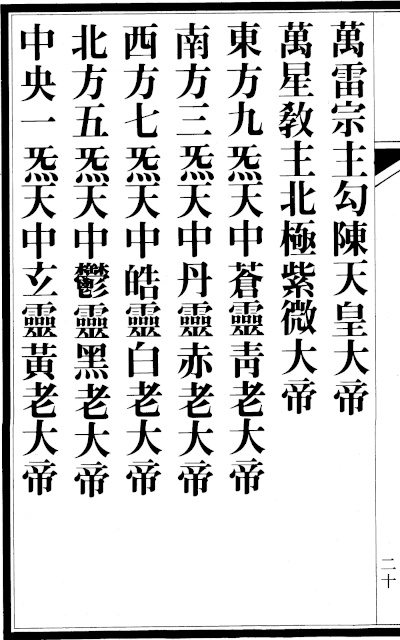 萬雷宗主勾陳天皇大帝
萬星敎主北極紫微大帝
東方九炁天中蒼靈靑老大帝
南方三炁天中丹靈赤老大帝
西方七炁天中皓靈白老大帝
北方五炁天中鬱靈黑老大帝
中央一炁天中玄靈黃老大帝
二十